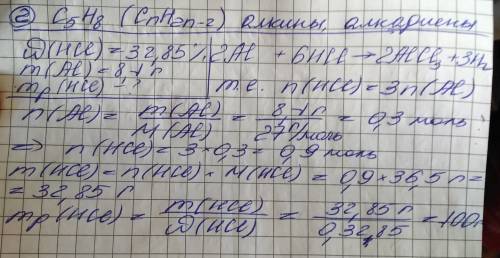 ② C₅H₈ (CₙH₂ₙ₋₂) алкины, алкадиены
D(HCl) = 32,85% 2Al + 6HCl → 2AlCl₃ + 3H₂
m(Al) = 8,1 г
mр(HCl) - ? т.е. n(HCl) = 3n(Al)
n(Al) = m(Al) / M(Al) = 8,1 г / 27 г/моль = 0,3 моль
=> n(HCl) = 3 × 0,3 = 0,9 моль
m(HCl) = n(HCl) × M(HCl) = 0,9 × 36,5 г =
= 32,85 г
mр(HCl) = m(HCl) / D(HCl) = 32,85 г / 0,3285 = 100г